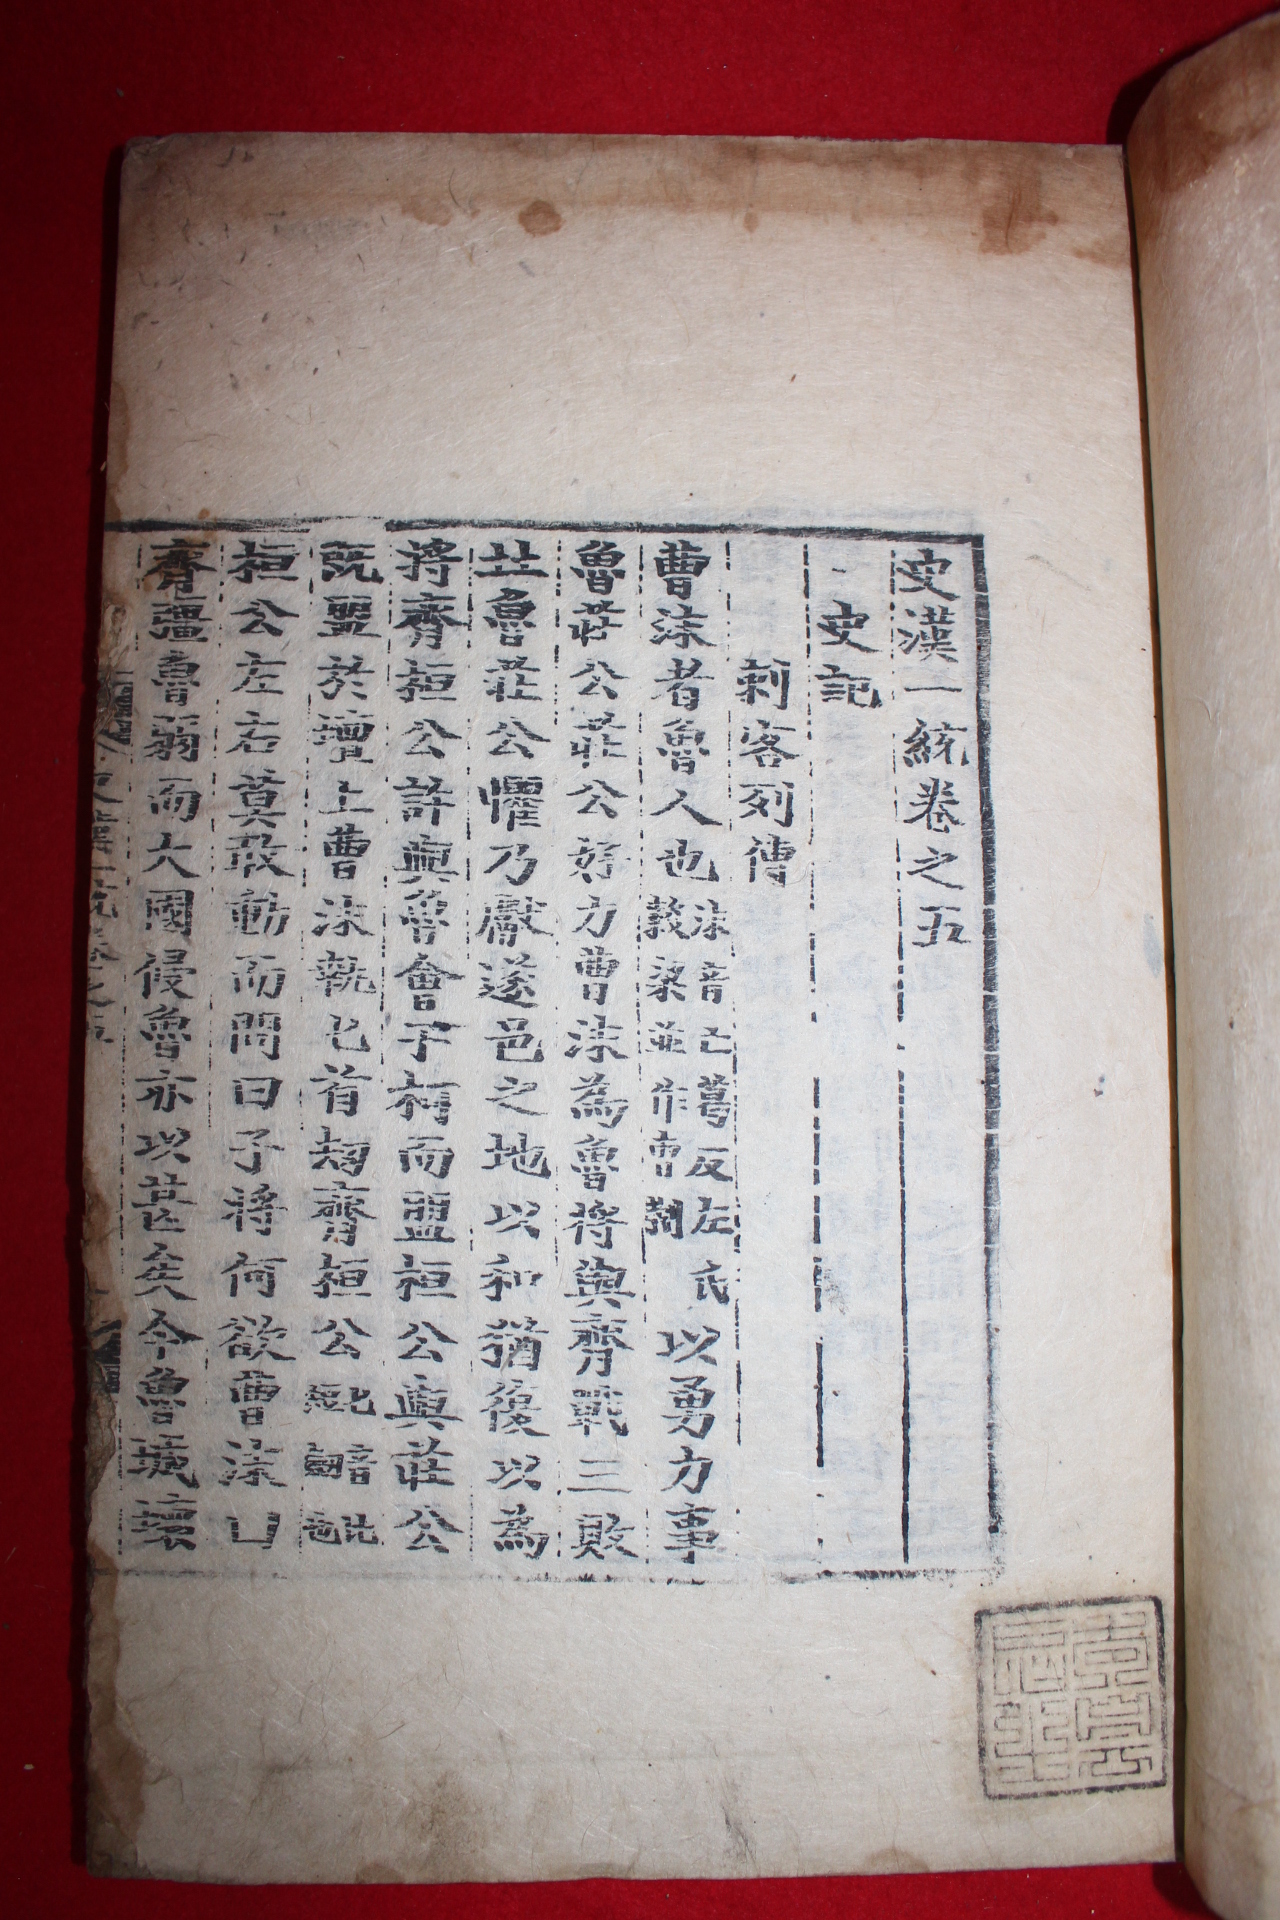 史漢一統卷之五
史記
刺客列傳
曹沫者魯人也沫音亡葛反左氏穀梁並作曹劌以勇力事
魯莊公莊公好力曹沫為魯將與齊戰三敗
北魯莊公懼乃獻遂邑之地以和猶復以為
將齊桓公許與魯會于柯而盟桓公與莊公
既盟於壇上曹沫執匕首劫齊桓公匕音比
桓公左右莫敢動而問曰子將何欲曹沫曰
齊强魯弱而大國侵魯亦以甚矣今魯城壞
史漢一統卷之五